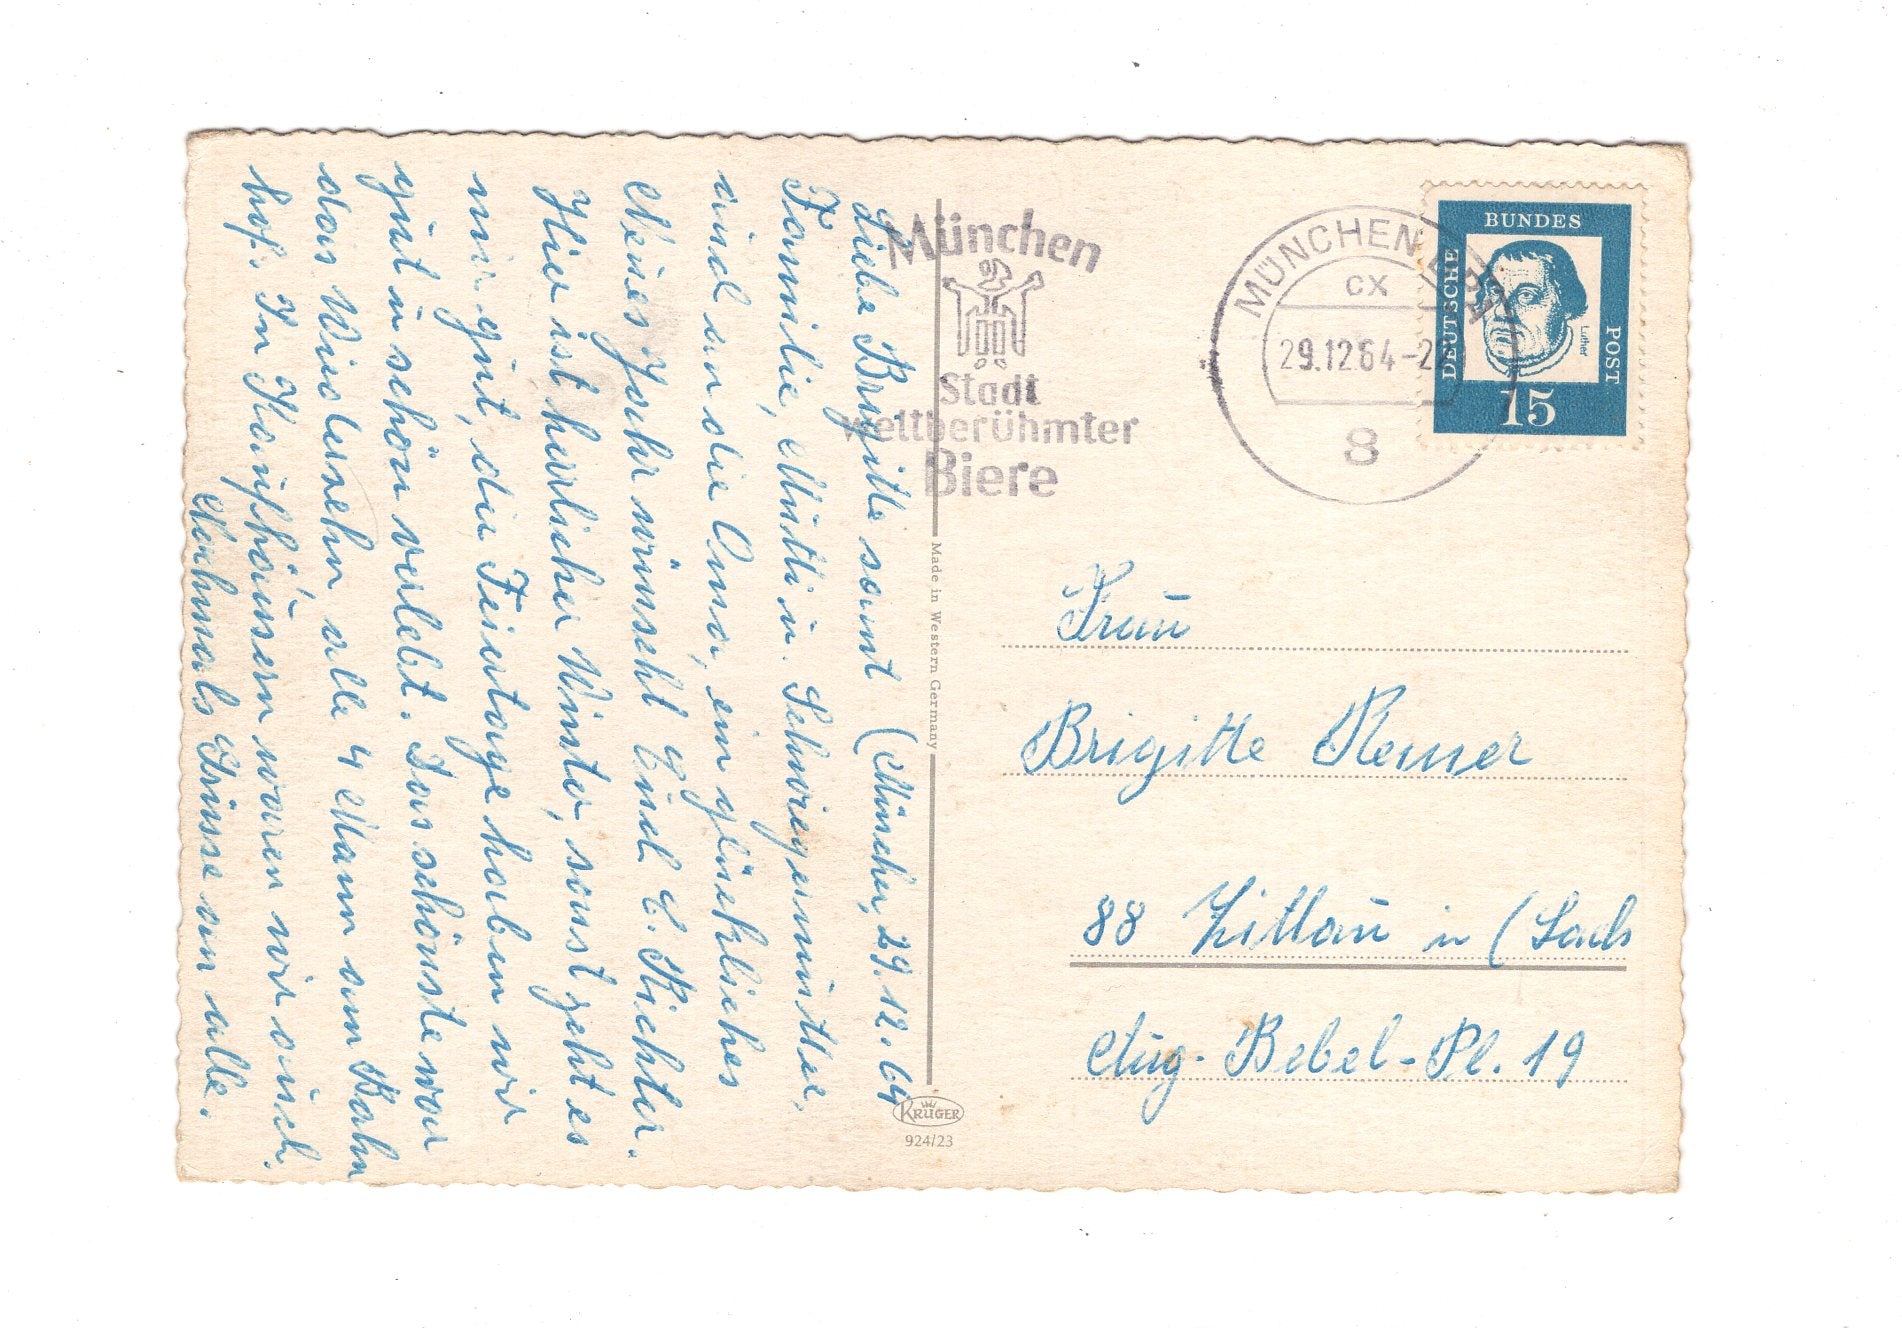 Liebe Brigitte samt (München, 29.12.64
Familie, Mutti u. Schwiegermutter,
und an die Oma, ein glückliches
Neues Jahr wünscht Euch E. Richter.
Hier ist herrlicher Winter, sonst geht es
mir gut, die Feiertage haben wir
gut u. schön verlebt. Das schönste war
das Wiedersehn alle 4 Mann am Bahn
hof. In Kaufhäusern waren wir auch.
Nochmals Grüsse an alle.
München
Stadt
weltberühmter
Biere
MÜNCHEN
CX
29.12.64-2
8
DEUTSCHE
BUNDES
POST
Luther
15
Made in Western Germany
KRÜGER
924/23
Frau
Brigitte
88 Zittau in (Sachs
Aug.-Bebel-Pl. 19